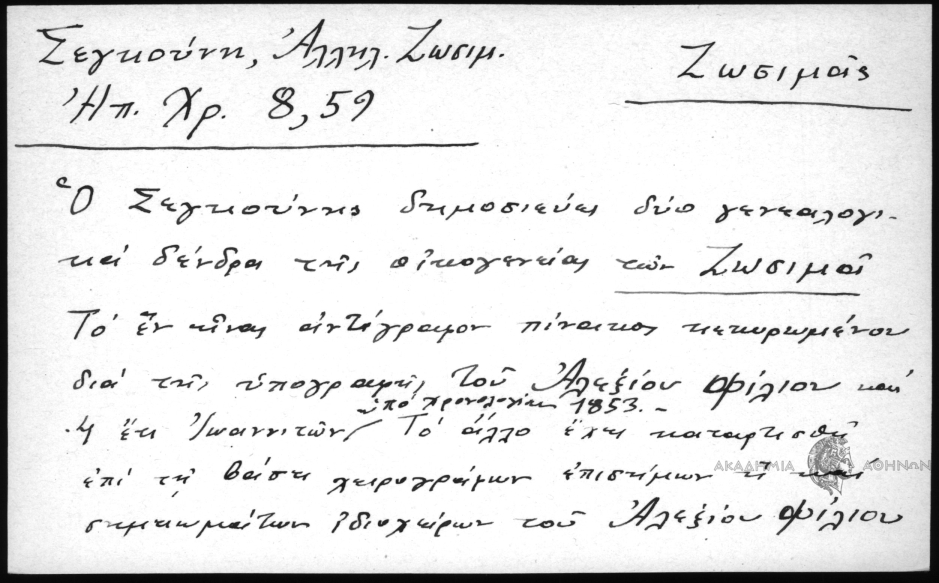 Σεγκούνη, Ἀλληλ. Ζωσιμ.
Ζωσιμᾶς
Ἠπ. Χρ. 8,59
Ὁ Σεγκούνης δημοσιεύει δύο γενεαλογι-
κά δένδρα τῆς οἰκογενείας τῶν Ζωσιμᾶ
Τό ἕν εἶναι ἀντίγραφον πίνακος κεκυρωμένου
διά τῆς ὑπογραφῆς τοῦ Ἀλεξίου Φίλιου καί
ὑπό χρονολογίαν 1853.-
4 ἔτι Ἰωαννιτῶν / Τό ἄλλο ἔχει καταρτισθῆ
ΑΚΑΔΗΜΙΑ ΑΘΗΝΩΝ
ἐπί τῇ βάσει χειρογράφων ἐπισήμων ἤ καί
σημειωμάτων ἰδιοχείρων τοῦ Ἀλεξίου Φίλιου